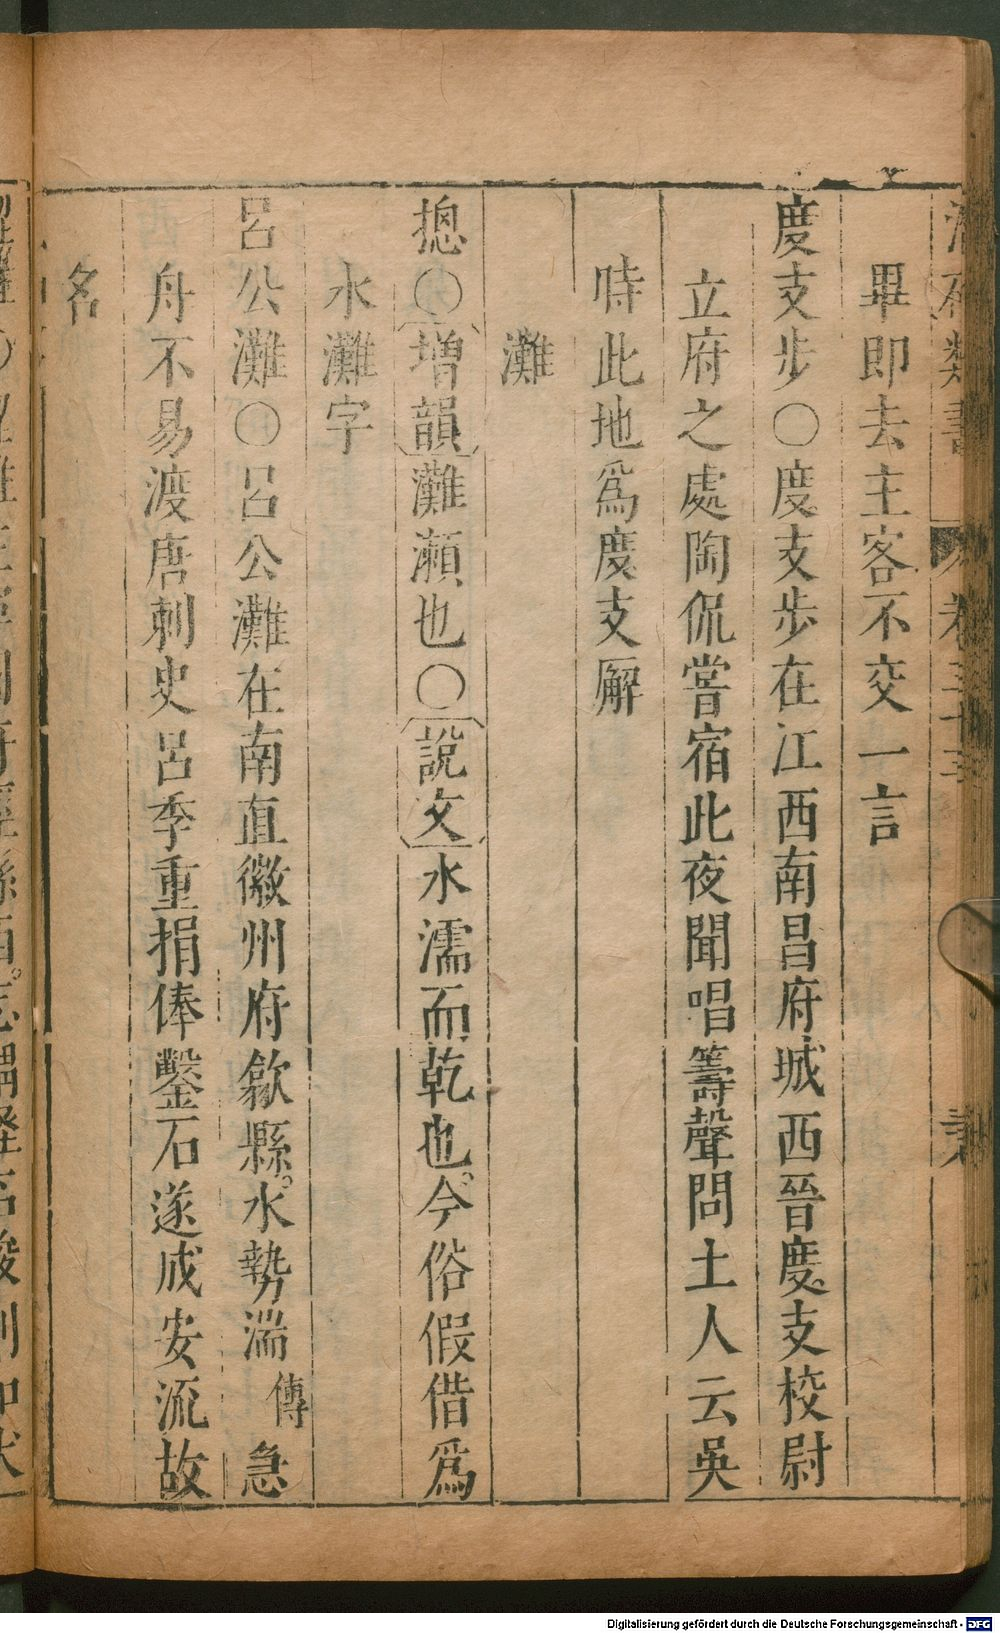 卷三十三
畢即去主客不交一言
度支步○度支步在江西南昌府城西晉度支校尉
立府之處陶侃嘗宿此夜聞唱籌聲問土人云吳
時此地爲度支廨
灘
摠○增韻灘瀬也○說文水濡而乾也。今俗假借爲
水灘字
呂公灘○呂公灘在南直徽州府歙縣。水勢湍傳急
舟不易渡唐刺史呂季重捐俸鑿石遂成安流故
名
Digitalisierung gefördert durch die Deutsche Forschungsgemeinschaft - DFG